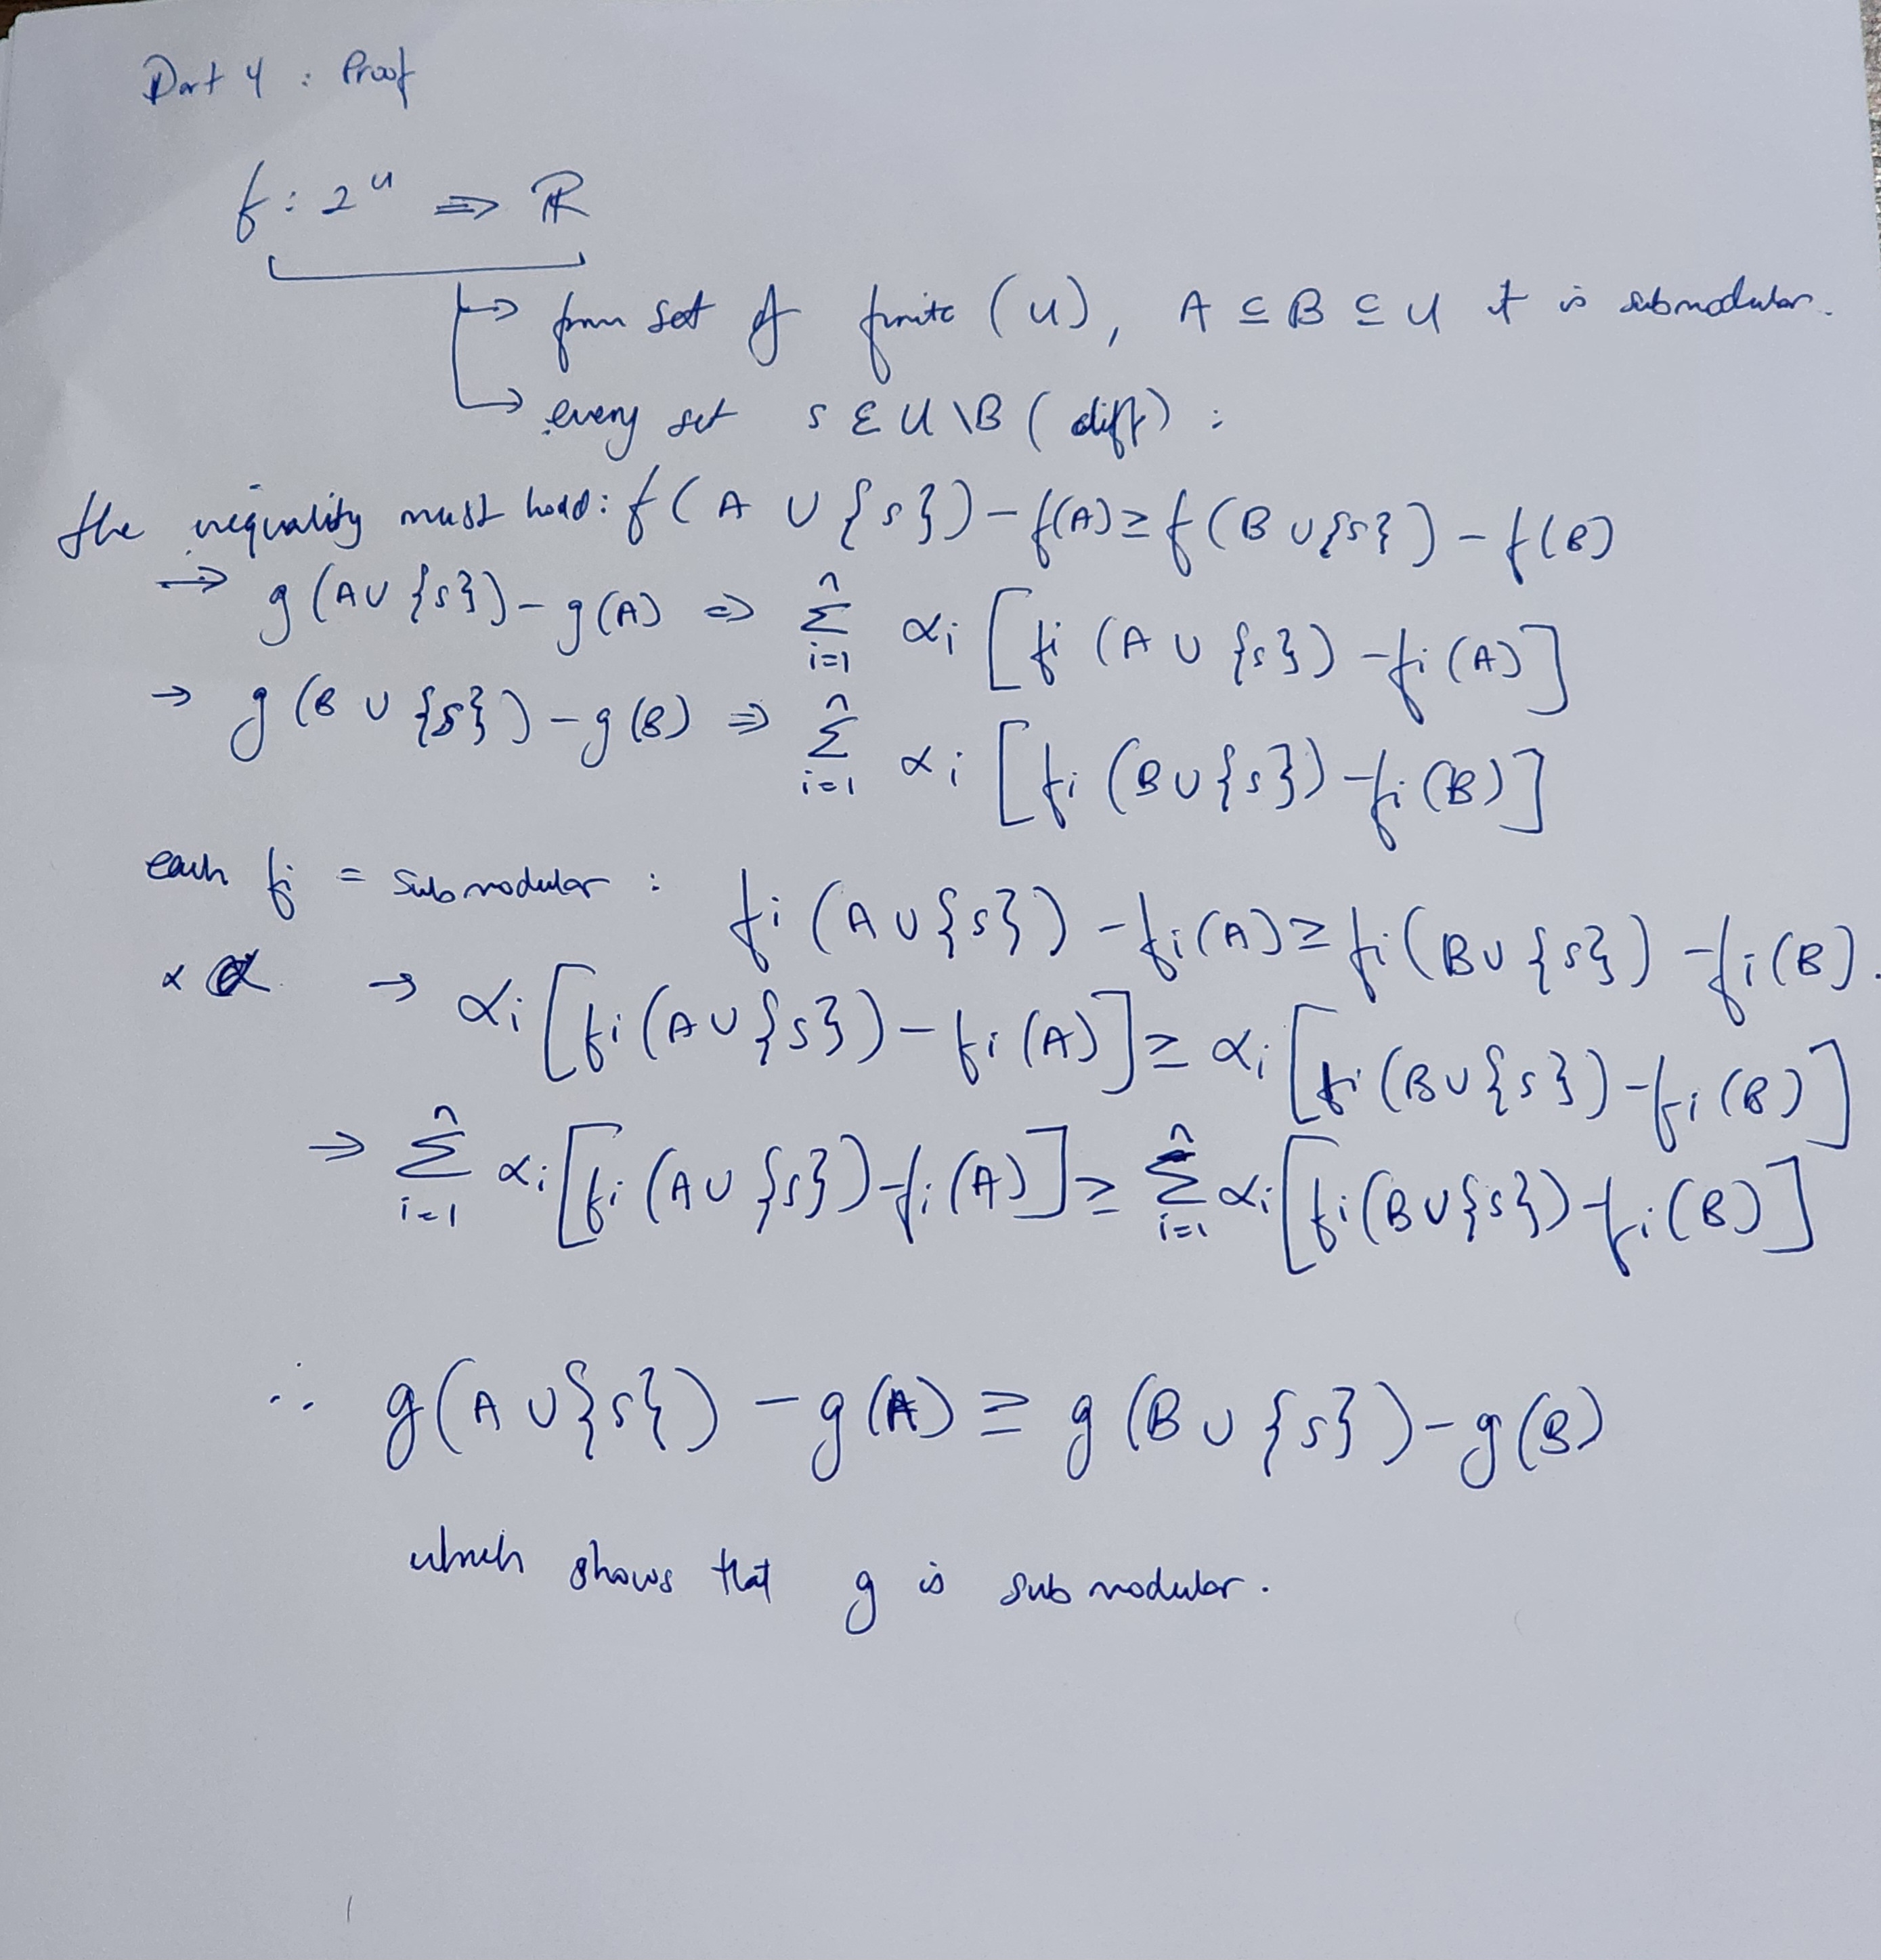 Part 4 : Proof
f : 2^U ⇒ ℝ
↳ from set of finite (U), A ⊆ B ⊆ U it is submodular.
↳ every set s ∈ U \ B (diff) :
the inequality must hold: f(A ∪ {s}) - f(A) ≥ f(B ∪ {s}) - f(B)
→ g(A ∪ {s}) - g(A) ⇒ Σ_{i=1}^{n} α_i [f_i(A ∪ {s}) - f_i(A)]
→ g(B ∪ {s}) - g(B) ⇒ Σ_{i=1}^{n} α_i [f_i(B ∪ {s}) - f_i(B)]
each f_i = submodular : f_i(A ∪ {s}) - f_i(A) ≥ f_i(B ∪ {s}) - f_i(B).
x α → α_i [f_i(A ∪ {s}) - f_i(A)] ≥ α_i [f_i(B ∪ {s}) - f_i(B)]
⇒ Σ_{i=1}^{n} α_i [f_i(A ∪ {s}) - f_i(A)] ≥ Σ_{i=1}^{n} α_i [f_i(B ∪ {s}) - f_i(B)]
∴ g(A ∪ {s}) - g(A) ≥ g(B ∪ {s}) - g(B)
which shows that g is submodular.